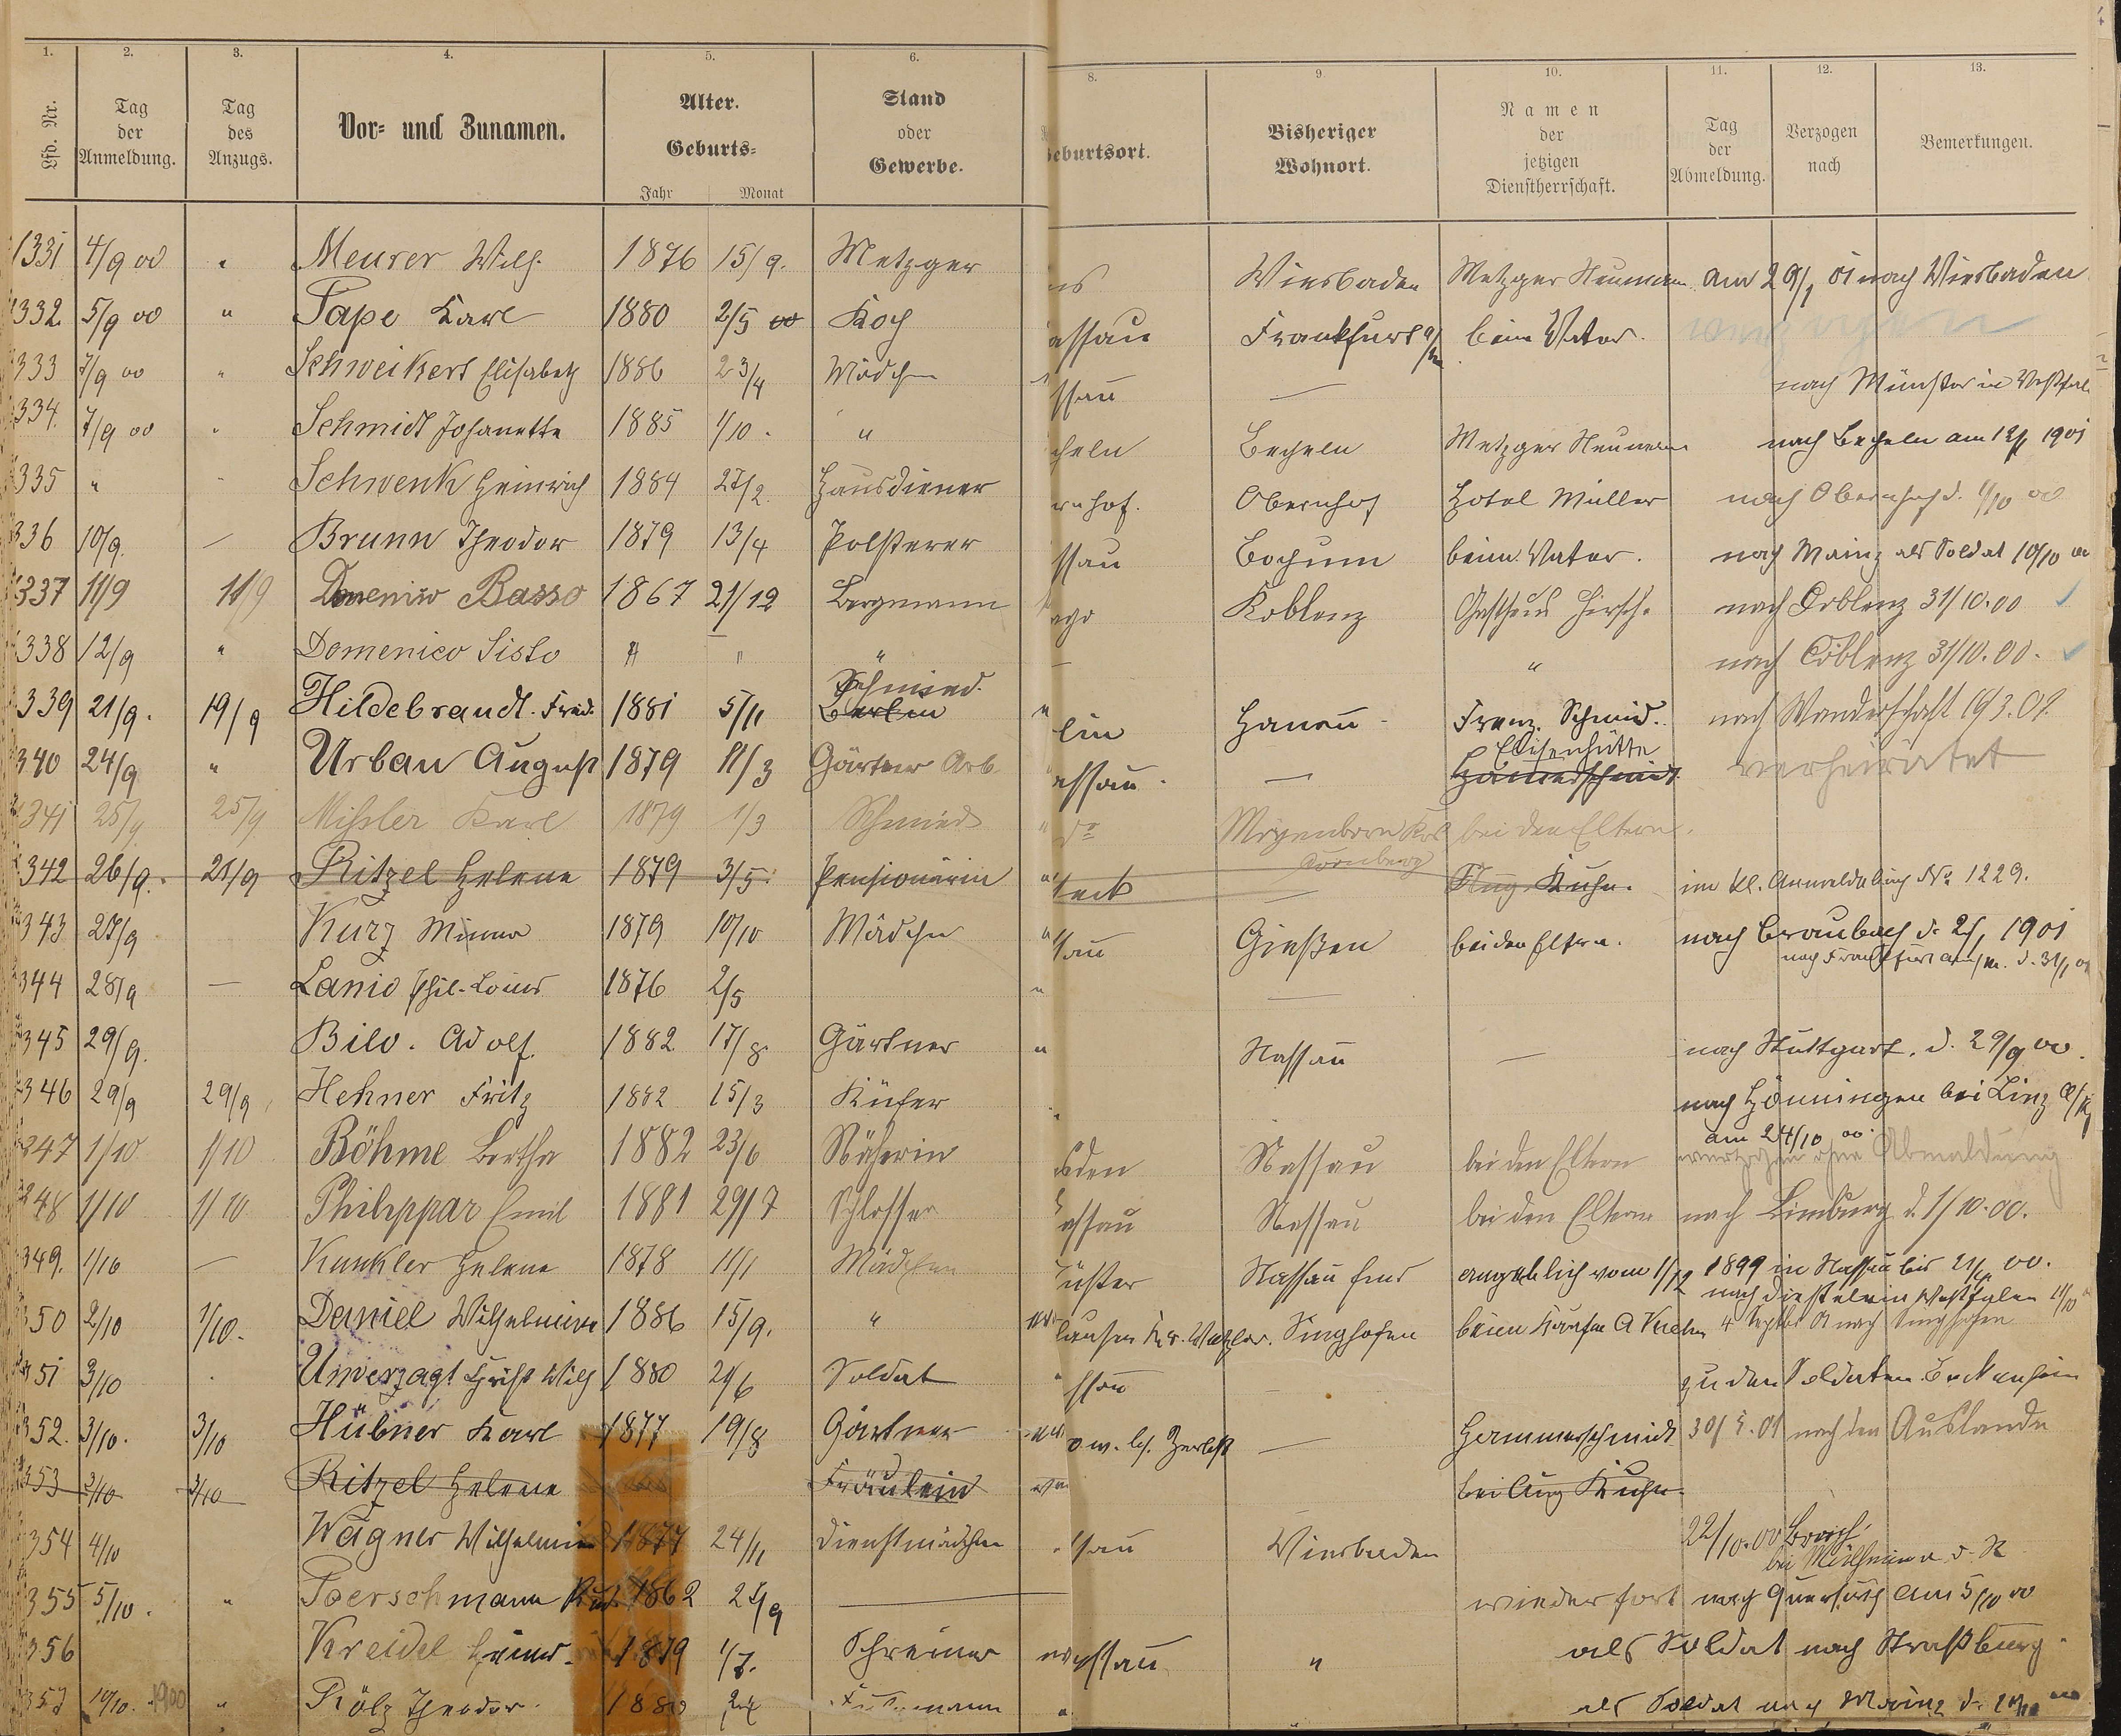 1. 2. 3. 4. 5. 6. 8. 9. 10. 11. 12. 13.
Lfd. Nr. Tag der Anmeldung. Tag des Anzugs. Vor- und Zunamen. Alter. Geburts- Jahr Monat Stand oder Gewerbe. Geburtsort. Bisheriger Wohnort. Namen der jetzigen Dienstherrschaft. Tag der Abmeldung. Verzogen nach Bemerkungen.
1331 4/9 00 " Meurer Wilh. 1876 15/9. Metzger Wiesbaden Metzger Neumann am 29/1 01 nach Wiesbaden
332. 5/9 00 " Pape Karl 1880 2/5 00 Koch assau Frankfurt a/M beim Vater.
333 7/9 00 " Schweikert Elisabeth 1886 23/4 Mädchen ssau — nach Münster in Westfal
334. 7/9 00 " Schmidt Johanette 1885 1/10. " cheln Becheln Metzger Neumann nach Becheln am 12/1 1901
335 " Schwenk Heinrich 1884 27/2. Hausdiener rnhof. Obernhof Hotel Müller nach Obernhof d. 1/10 00
336 10/9. — Brunn Theodor 1879 13/4 Polsterer ssau Bochum beim Vater. nach Mainz als Soldat 10/10 00
337 11/9 11/9 Domenico Basso 1867 21/12 Bergmann Koblenz Gasthaus Hirsch. nach Coblenz 31/10.00
338 12/9 " Domenico Sisto " " " — " nach Coblenz 31/10.00.
339 21/9. 19/9 Hildebrandt. Fried. 1881 5/11 Schmied. Berlin lin Hanau Franz Schmid. nach Wanderschaft 19/3.01.
340 24/9 " Urban August 1879 11/3 Gärtner Arb. assau. — Elisenhütte Hammerschmidt verheiratet
341 25/9 25/9 Missler Karl 1879 1/3 Schmied do bei den Eltern.
342 26/9. 21/9 Ritzel Helene 1879 3/5. Pensionärin — Aug. Kuhn. im Kl. Anmeldebuch No. 1229.
343 27/9 Kurz Minna 1879 10/10 Mädchen sau Gießen bei den Eltern. nach Braubach d. 2/1 1901
344 28/9 — Lanio Phil. Louis 1876 2/5 " — nach Frankfurt am/M. d. 31/1 01
345 29/9. Bilo. Adolf. 1882 17/8. Gärtner " Nassau — nach Stuttgart. d. 29/9 00.
346 29/9 29/9 Hehner Fritz 1882 15/3 Küfer nach Hönningen bei Linz a/Rh am 24/10 00.
347 1/10 1/10 Böhme Bertha 1882 23/6 Näherin Nassau bei den Eltern verzogen ohne Abmeldung
348 1/10 1/10 Philippar Emil 1881 29/7 Schlosser assau Nassau bei den Eltern nach Limburg d. 1/10.00.
349. 1/10 — Kunkler Helene 1878 11/1 Mädchen ünster Nassau angeblich vom 1/12 1899 in Nassau bis 00.
350 2/10 1/10. Daniel Wilhelmine 1886 15/9. " hausen Kr. Wetzlar. Singhofen beim Kaufm A Kuhn 4 Septbr 01 nach Singhofen
351 3/10 Unverzagt Wilh 1880 Soldat ssau — zu den Soldaten. Bockenheim
352. 3/10. 3/10 Hübner Karl 1877 19/8 Gärtner Zerbst — Hammerschmidt 30/5.01 nach den Auslande
353 3/10 3/10 Ritzel Helene Fräulein bei Aug Kuhn.
354 4/10 Wagner Wilhelmine 1877 24/11 Dienstmädchen ssau Wiesbaden 22/10.00 Broich bei Mülheim a. d. R
355 5/10. " Poerschmann Rud. 1862 — wieder fort nach Querfurth am 5/10 00
356 Kreidel Heinr. 1879 1/7. Schreiner assau " als Soldat nach Straßburg.
357 10/10. 1900 " Pölz Theodor. 1880 als Soldat nach Mainz d.